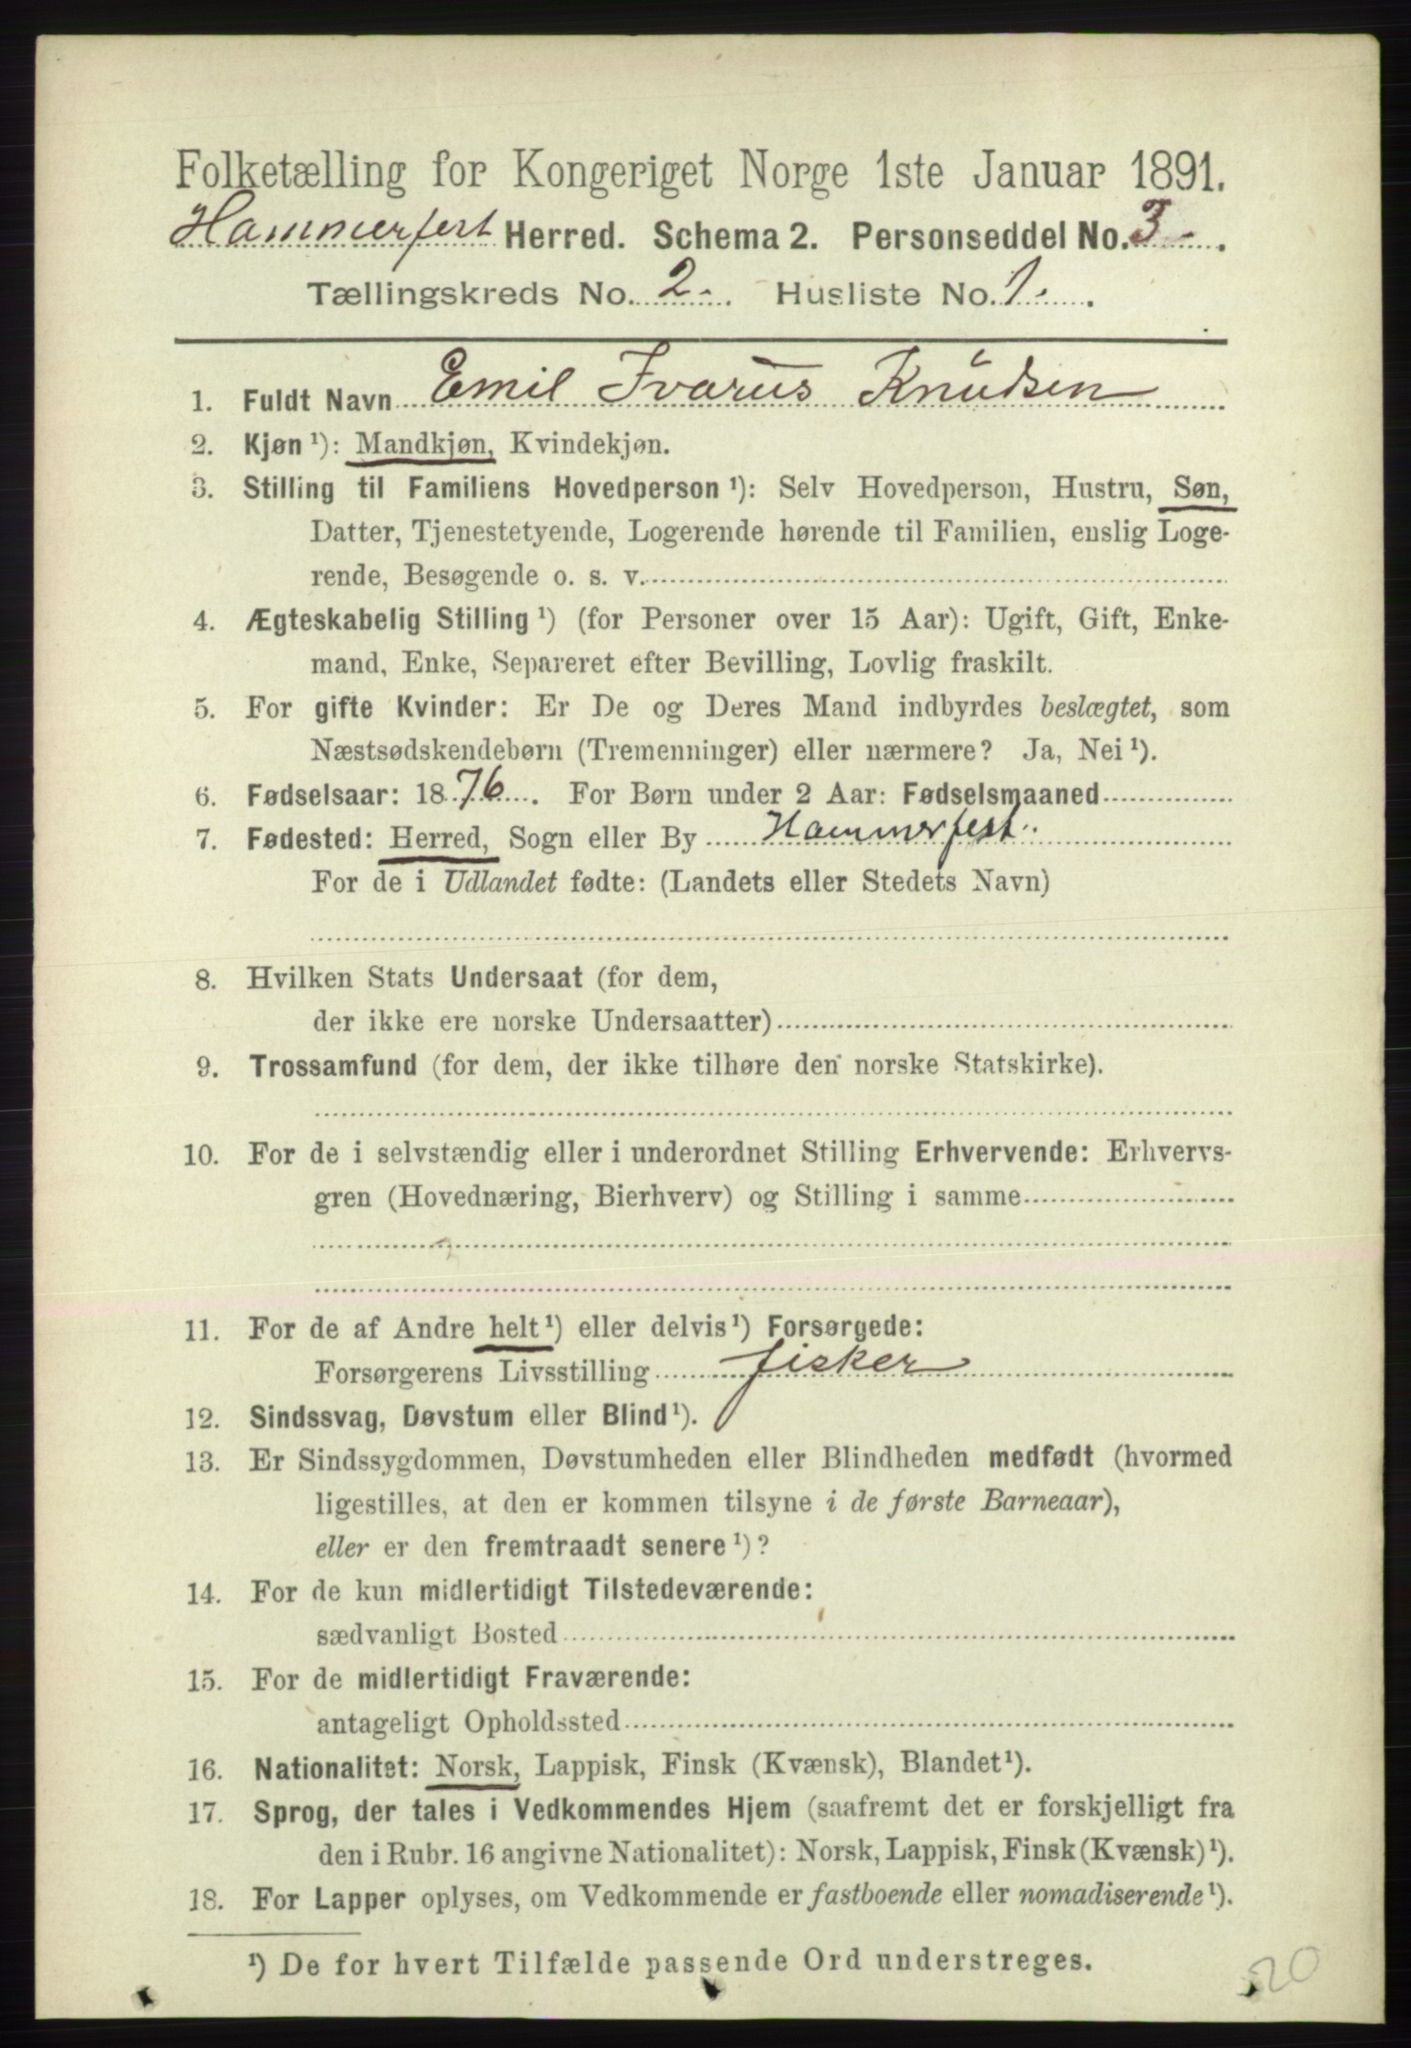 Folketælling for Kongeriget Norge 1ste Januar 1891.
Hammerfest Herred. Schema 2. Personseddel No. 3.
Tællingskreds No. 2. Husliste No. 1.
1. Fuldt Navn Emil Ivarus Knudsen
2. Kjøn ¹): Mandkjøn, Kvindekjøn.
3. Stilling til Familiens Hovedperson ¹): Selv Hovedperson, Hustru, Søn,
Datter, Tjenestetyende, Logerende hørende til Familien, enslig Loge-
rende, Besøgende o. s. v.
4. Ægteskabelig Stilling ¹) (for Personer over 15 Aar): Ugift, Gift, Enke-
mand, Enke, Separeret efter Bevilling, Lovlig fraskilt.
5. For gifte Kvinder: Er De og Deres Mand indbyrdes beslægtet, som
Næstsødskendebørn (Tremenninger) eller nærmere? Ja, Nei ¹).
6. Fødselsaar: 1876. For Børn under 2 Aar: Fødselsmaaned
7. Fødested: Herred, Sogn eller By Hammerfest.
For de i Udlandet fødte: (Landets eller Stedets Navn)
8. Hvilken Stats Undersaat (for dem,
der ikke ere norske Undersaatter)
9. Trossamfund (for dem, der ikke tilhøre den norske Statskirke).
10. For de i selvstændig eller i underordnet Stilling Erhvervende: Erhvervs-
gren (Hovednæring, Bierhverv) og Stilling i samme
11. For de af Andre helt ¹) eller delvis ¹) Forsørgede:
Forsørgerens Livsstilling fisker
12. Sindssvag, Døvstum eller Blind ¹).
13. Er Sindssygdommen, Døvstumheden eller Blindheden medfødt (hvormed
ligestilles, at den er kommen tilsyne i de første Barneaar),
eller er den fremtraadt senere ¹)?
14. For de kun midlertidigt Tilstedeværende:
sædvanligt Bosted
15. For de midlertidigt Fraværende:
antageligt Opholdssted
16. Nationalitet: Norsk, Lappisk, Finsk (Kvænsk), Blandet ¹).
17. Sprog, der tales i Vedkommendes Hjem (saafremt det er forskjelligt fra
den i Rubr. 16 angivne Nationalitet): Norsk, Lappisk, Finsk (Kvænsk) ¹).
18. For Lapper oplyses, om Vedkommende er fastboende eller nomadiserende ¹).
¹) De for hvert Tilfælde passende Ord understreges.
20